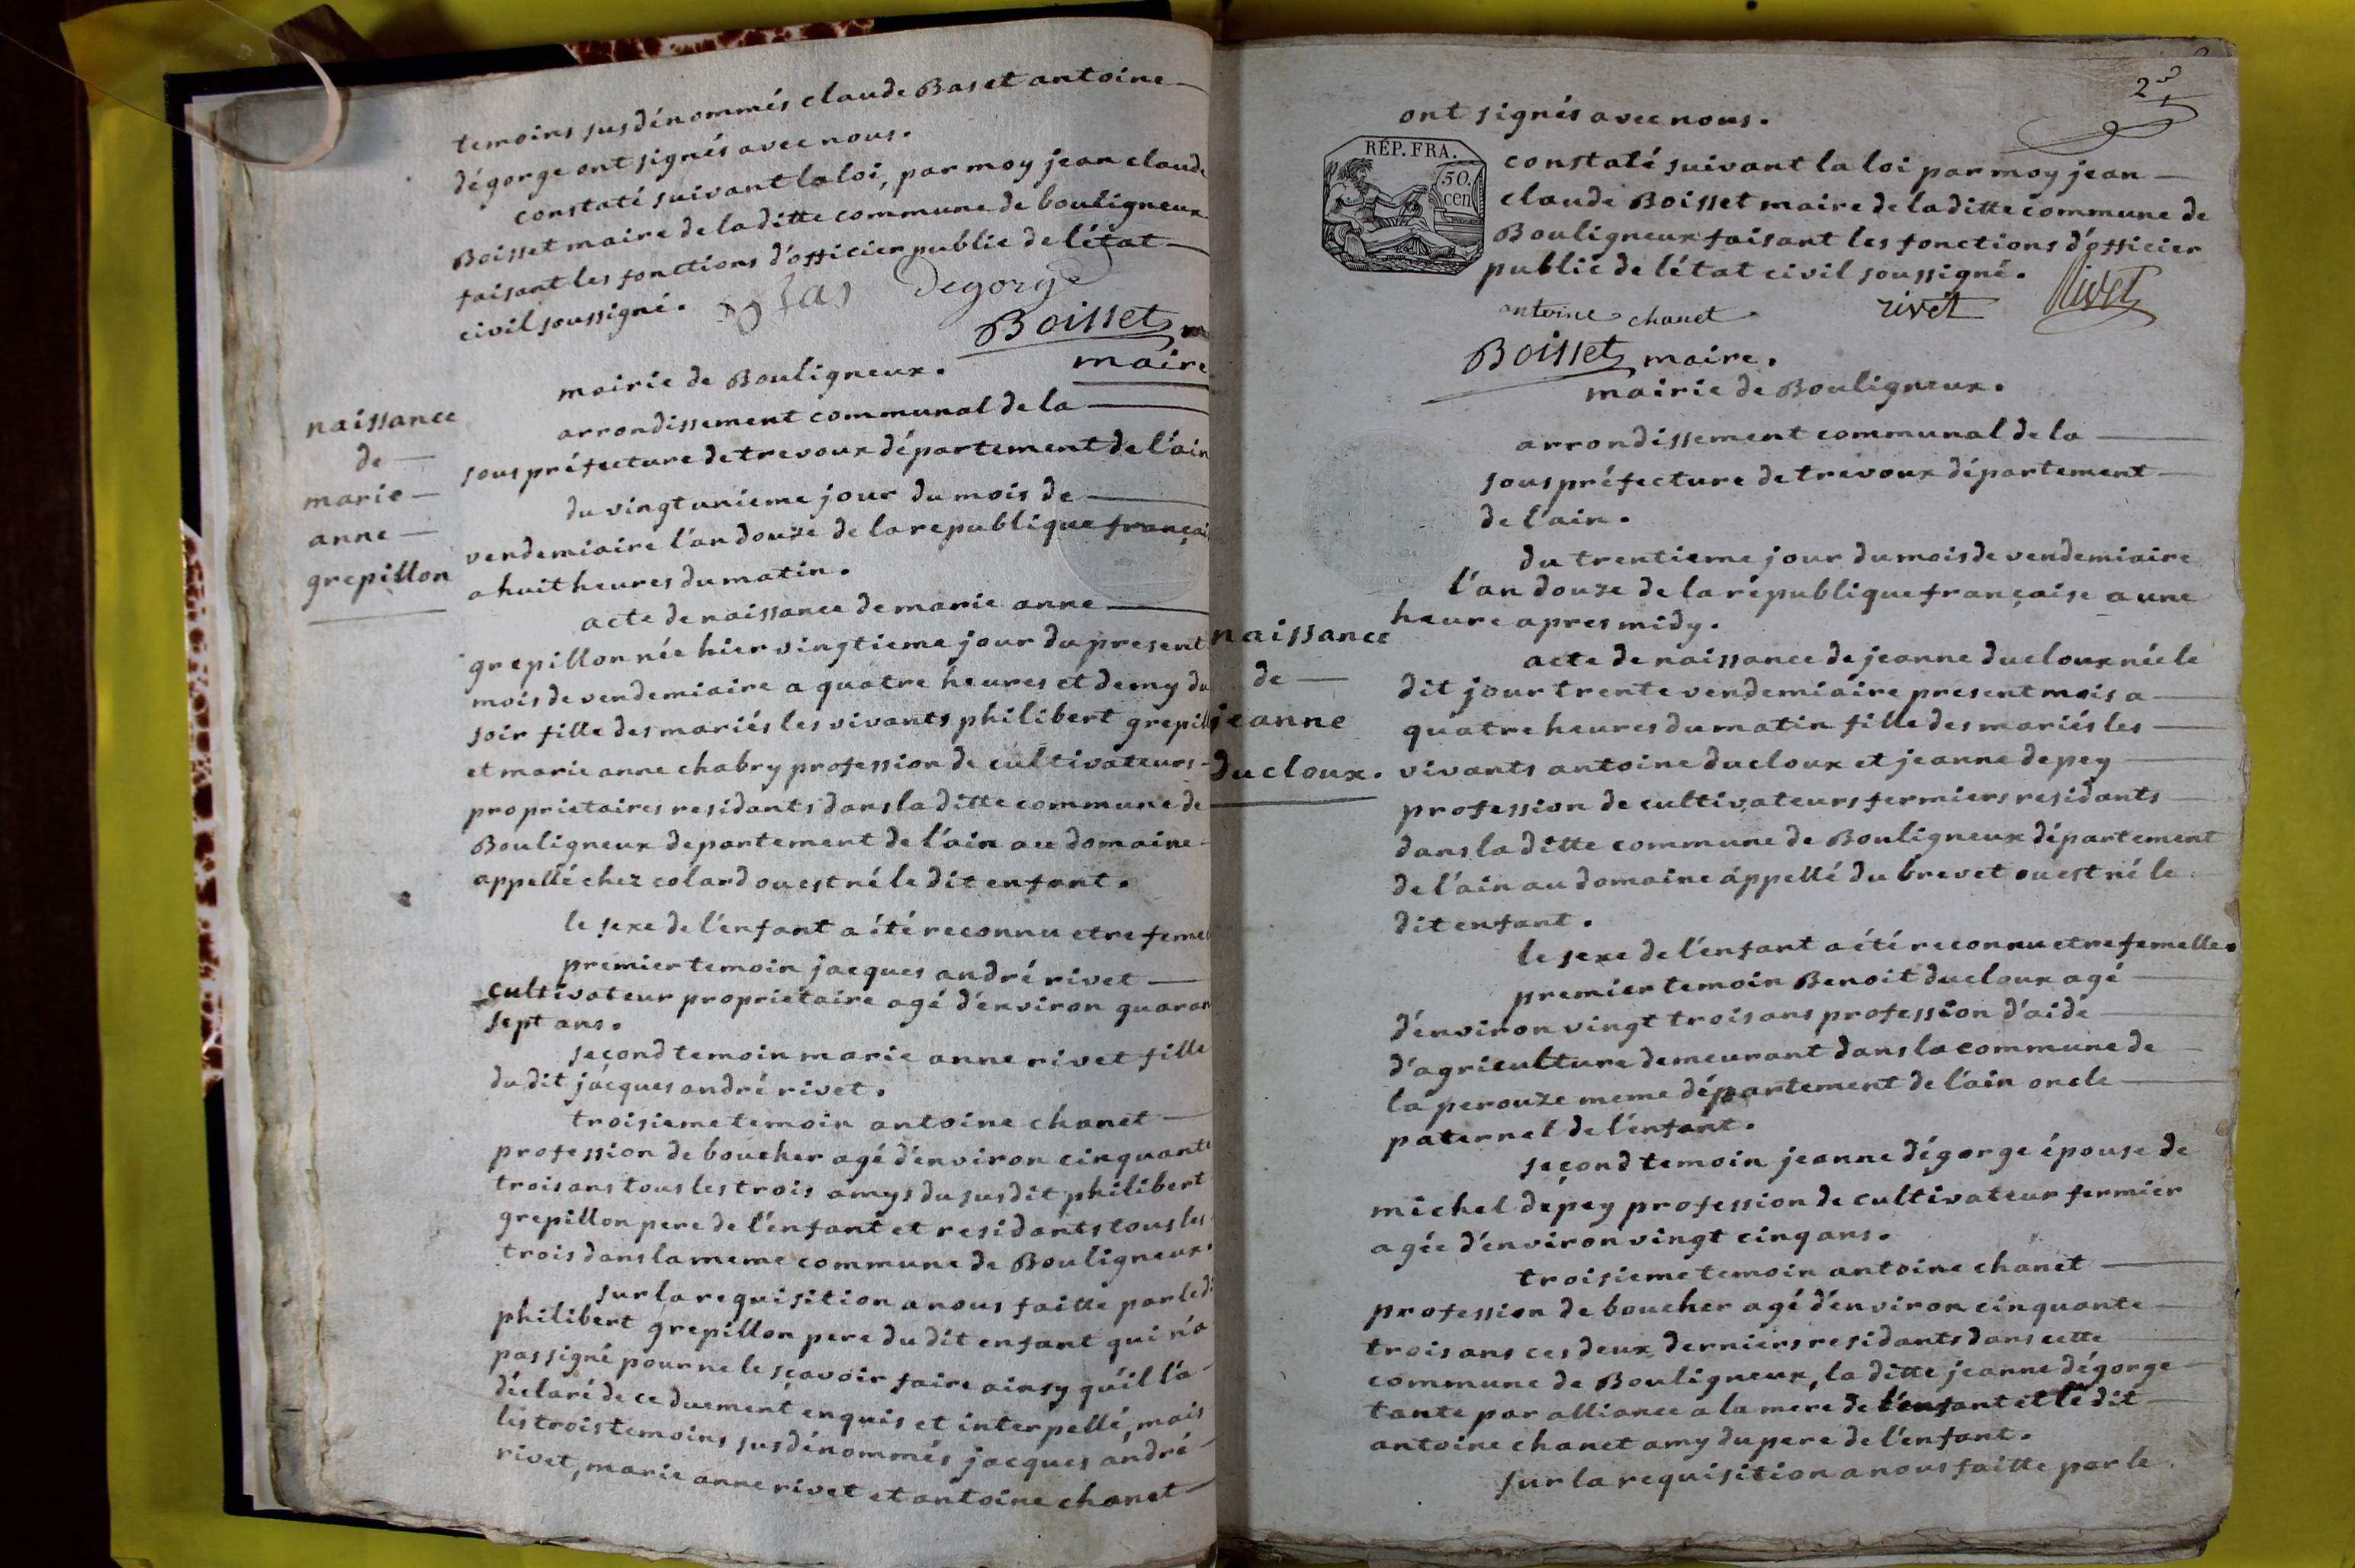 temoins susdénommés claude Bas et antoine
dégorge ont signés avec nous.
constaté suivant la loi, par moy jean claude
Boisset maire de la ditte commune de bouligneux
faisant les fonctions d'officier public de l'état
civil soussigné. Bas Degorge
Boisset
maire
mairie de Bouligneux.
arrondissement communal de la
sous préfecture de trevoux département de l'ain
du vingt unieme jour du mois de
vendemiaire l'an douze de la republique françai
a huit heures du matin.
naissance
de
marie
anne
grepillon
acte de naissance de marie anne
grepillon née hier vingtieme jour du present
mois de vendemiaire a quatre heures et demy du
soir fille des mariés les vivants philibert grepill
et marie anne chabry profession de cultivateurs
proprietaires residants dans la ditte commune de
Bouligneux departement de l'ain au domaine
appellé chez colard ou est né le dit enfant.
le sexe de l'enfant a été reconnu etre femel
premier temoin jacques andré rivet
cultivateur proprietaire agé d'environ quaran
sept ans.
second temoin marie anne rivet fille
du dit jacques andré rivet.
troisieme temoin antoine chanet
profession de boucher agé d'environ cinquante
trois ans tous les trois amys du susdit philibert
grepillon pere de l'enfant et residants tous les
trois dans la meme commune de Bouligneux.
sur la requisition a nous faitte par le di
philibert grepillon pere du dit enfant qui n'a
pas signé pour ne le sçavoir faire ainsy qu'il l'a
déclaré de ce duement enquis et interpellé, mais
les trois temoins susdénommés jacques andré
rivet, marie anne rivet et antoine chanet
2
ont signés avec nous.
RÉP. FRA.
50.
cen
constaté suivant la loi par moy jean
claude Boisset maire de la ditte commune de
Bouligneux faisant les fonctions d'officier
public de l'état civil soussigné.
antoine chanet rivet Rivet
Boisset maire.
mairie de Bouligneux.
arrondissement communal de la
sous préfecture de trevoux département
de l'ain.
du trentieme jour du mois de vendemiaire
l'an douze de la république française a une
heure apres midy.
naissance
de
jeanne
ducloux.
acte de naissance de jeanne ducloux née le
dit jour trente vendemiaire present mois a
quatre heures du matin fille des mariés les
vivants antoine ducloux et jeanne depey
profession de cultivateurs fermiers residants
dans la ditte commune de Bouligneux département
de l'ain au domaine appellé du brevet ou est né le
dit enfant.
le sexe de l'enfant a été reconnu etre femelle.
premier temoin Benoit ducloux agé
d'environ vingt trois ans profession d'aide
d'agriculture demeurant dans la commune de
la perouze meme département de l'ain oncle
paternel de l'enfant.
second temoin jeanne dégorge épouse de
michel depey profession de cultivateur fermier
agée d'environ vingt cinq ans.
troisieme temoin antoine chanet
profession de boucher agé d'environ cinquante
trois ans ces deux derniers residants dans cette
commune de Bouligneux, la ditte jeanne dégorge
tante par alliance a la mere de l'enfant et le dit
antoine chanet amy du pere de l'enfant.
sur la requisition a nous faitte par le